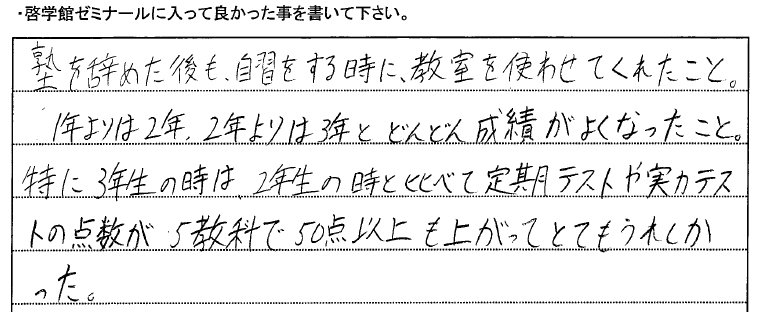 ・啓学館ゼミナールに入って良かった事を書いて下さい。
塾を辞めた後も、自習をする時に、教室を使わせてくれたこと。
1年よりは2年、2年よりは3年と どんどん成績がよくなったこと。
特に3年生の時は、2年生の時と比べて定期テストや実力テス
トの点数が 5教科で50点以上も上がってとてもうれしか
った。